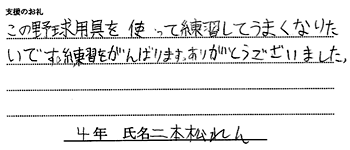 支援のお礼
この野球用具を使って練習してうまくなりた
いです。練習をがんばります。ありがとうございました。
4年 氏名 二本松れん